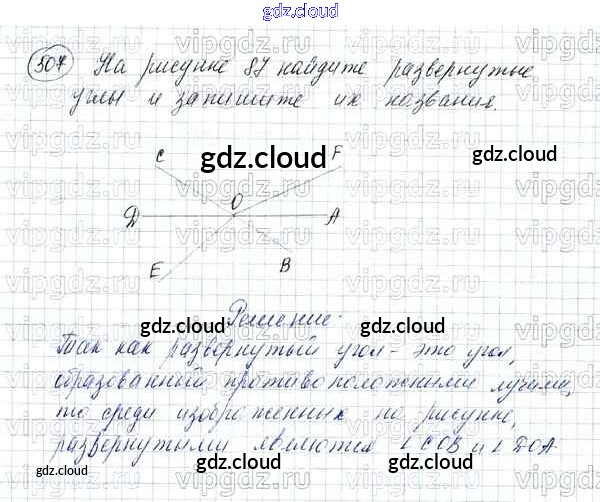 gdz.cloud
507 На рисунке 87 найдите развернутые
углы и запишите их названия.
C
F
gdz.cloud
gdz.cloud
O
Д
A
E
B
Решение.
gdz.cloud
gdz.cloud
Так как развернутый угол - это угол,
образованный противоположными лучами,
то среди изображенных на рисунке,
развернутыми являются ∠COB и ∠ДOA
gdz.cloud
gdz.cloud
gdz.cloud